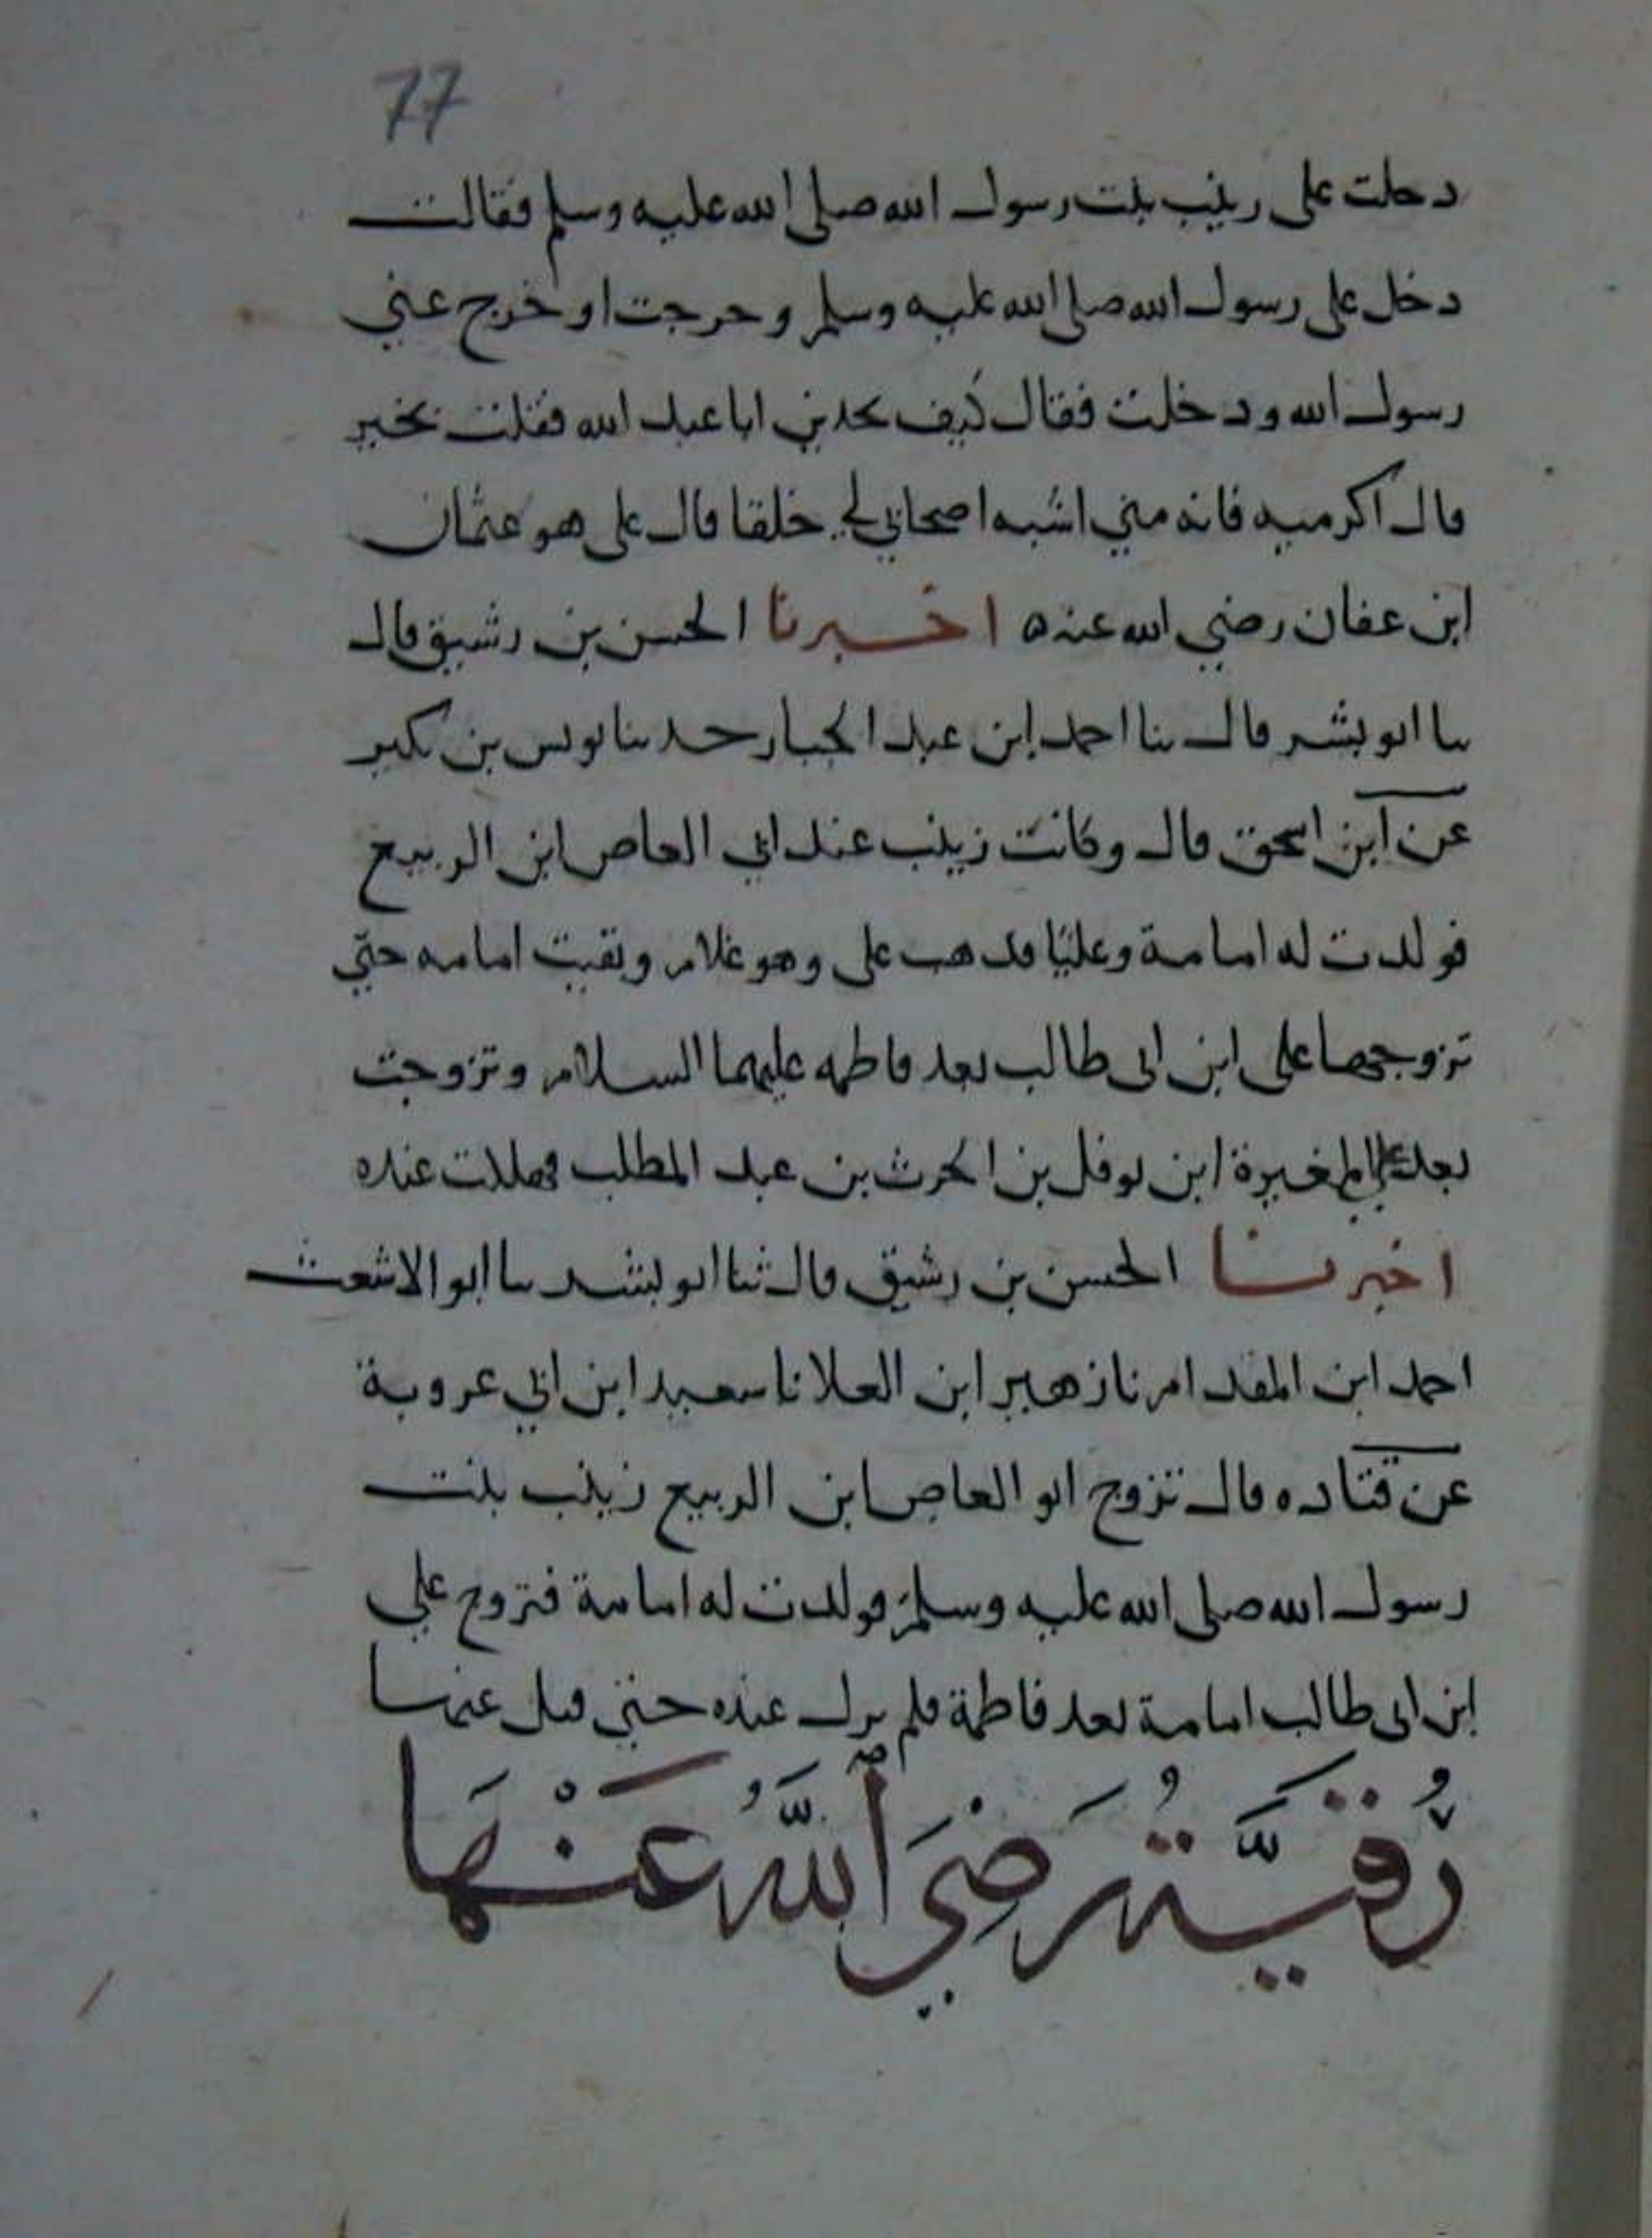 77
دخلت على زينب بنت رسول الله صلى الله عليه وسلم فقالت
دخل على رسول الله صلى الله عليه وسلم وخرجت او خرج عني
رسول الله ودخلت فقال كيف تجدين ابا عبد الله فقلت بخير
قال اكرميه فانه مني اشبه اصحابي لي خلقا قال على هو عثمان
ابن عفان رضي الله عنه ه اخبرنا الحسن بن رشيق قال
نا ابو بشر قال نا احمد ابن عبد الجبار حدثنا يونس بن بكير
عن ابن اسحق قال وكانت زينب عند ابي العاص ابن الربيع
فولدت له امامة وعليّا فذهب على وهو غلام وبقيت امامه حتي
تزوجها على ابن ابى طالب بعد فاطمه عليهما السلام وتزوجت
بعد علي المغيرة ابن نوفل بن الحرث بن عبد المطلب فهلكت عنده
اخبرنا الحسن بن رشيق قال ثنا ابو بشر نا ابو الاشعث
احمد ابن المقدام نا زهير ابن العلا نا سعيد ابن ابي عروبة
عن قتاده قال تزوج ابو العاص ابن الربيع زينب بنت
رسول الله صلى الله عليه وسلم فولدت له امامة فتزوج علي
ابن ابى طالب امامة بعد فاطمة فلم يزل عنده حتى قبل عنها
رُقَيَّةُ رَضِيَ ٱللَّهُ عَنْهَا